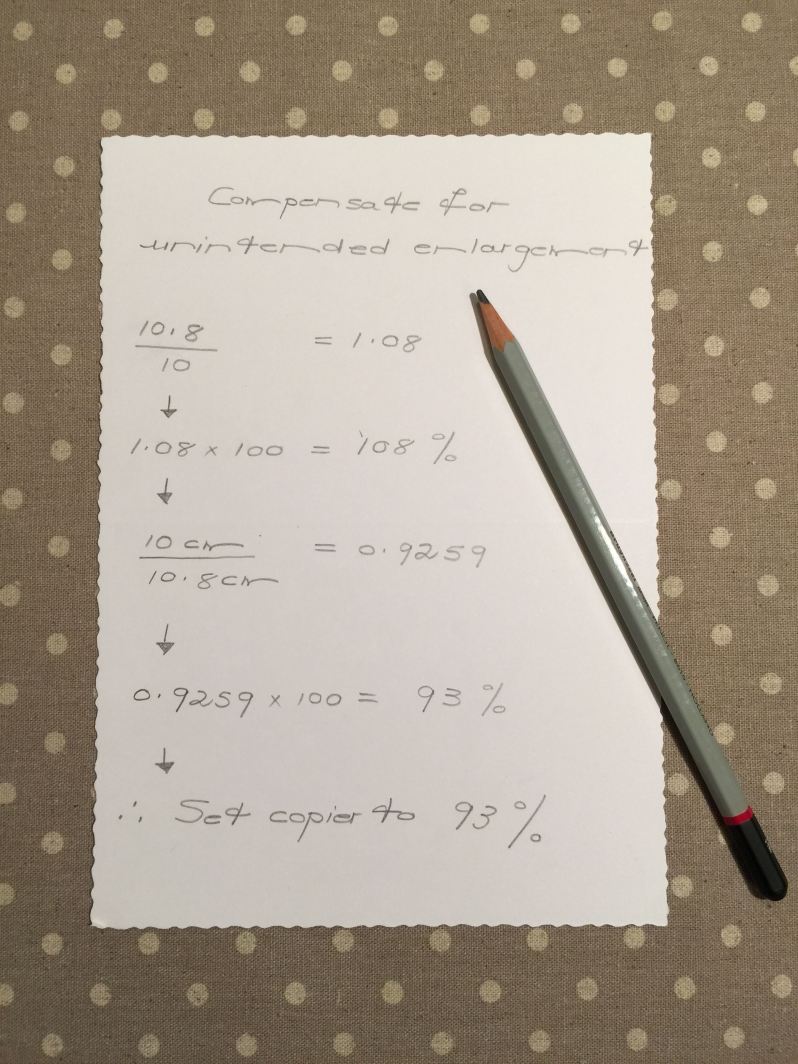 Compensate for
unintended enlargement
10.8
10
= 1.08
↓
1.08 × 100 = 108 %
↓
10 cm
10.8cm
= 0.9259
↓
0.9259 × 100 = 93 %
↓
∴ Set copier to 93 %